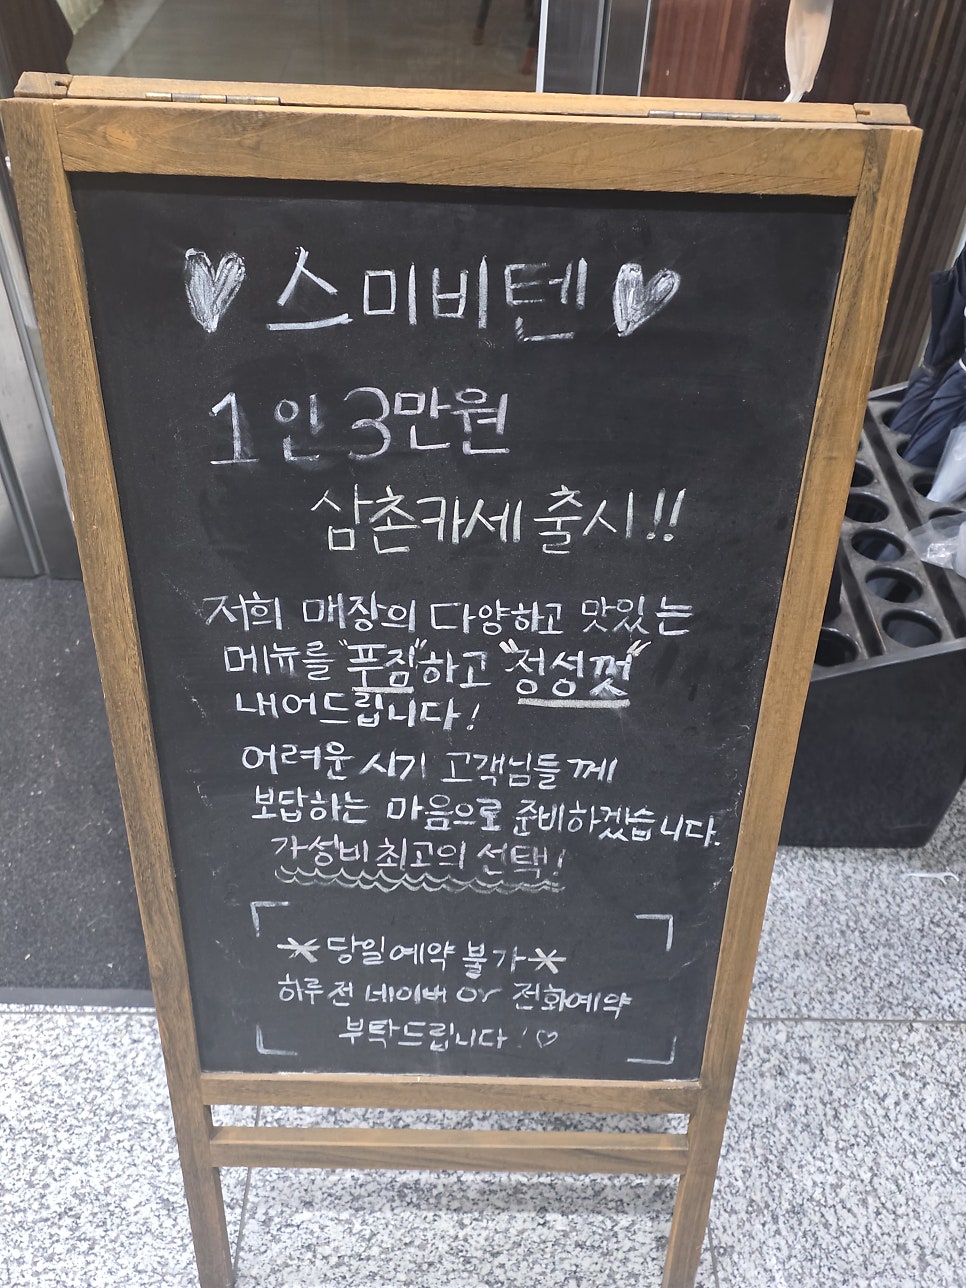 ♥ 스미비텐 ♥
1인 3만원
삼촌카세 출시!!
저희 매장의 다양하고 맛있는
메뉴를 "푸짐"하고 "정성껏"
내어드립니다!
어려운 시기 고객님들께
보답하는 마음으로 준비하겠습니다.
가성비 최고의 선택!
* 당일예약 불가 *
하루 전 네이버 or 전화예약
부탁드립니다! ♡